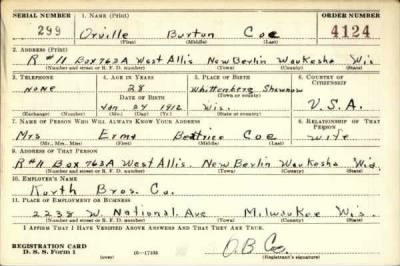 SERIAL NUMBER 1. NAME (Print) ORDER NUMBER
299 Orville Burton Coe 4124
(First) (Middle) (Last)
2. ADDRESS (Print)
R#11 Box 762A West Allis New Berlin Waukesha Wis
(Number and street or R. F. D. number) (Town) (County) (State)
3. TELEPHONE 4. AGE IN YEARS 5. PLACE OF BIRTH 6. COUNTRY OF CITIZENSHIP
none 28 Whittenberg Shawnow
DATE OF BIRTH (Town or county)
Jan. 24 1912 Wis. U.S.A.
(Exchange) (Number) (Mo.) (Day) (Yr.) (State or country)
7. NAME OF PERSON WHO WILL ALWAYS KNOW YOUR ADDRESS 8. RELATIONSHIP OF THAT PERSON
Mrs Erma Beatrice Coe wife
(Mr., Mrs., Miss) (First) (Middle) (Last)
9. ADDRESS OF THAT PERSON
R#11 Box 762A West Allis. New Berlin Waukesha Wis.
(Number and street or R. F. D. number) (Town) (County) (State)
10. EMPLOYER'S NAME
Kurth Bros. Co.
11. PLACE OF EMPLOYMENT OR BUSINESS
2238 W National. Ave Milwaukee Wis.
(Number and street or R. F. D. number) (Town) (County) (State)
I AFFIRM THAT I HAVE VERIFIED ABOVE ANSWERS AND THAT THEY ARE TRUE.
REGISTRATION CARD
D. S. S. Form 1 (over) 16—17105 O.B. Coe
(Registrant's signature)